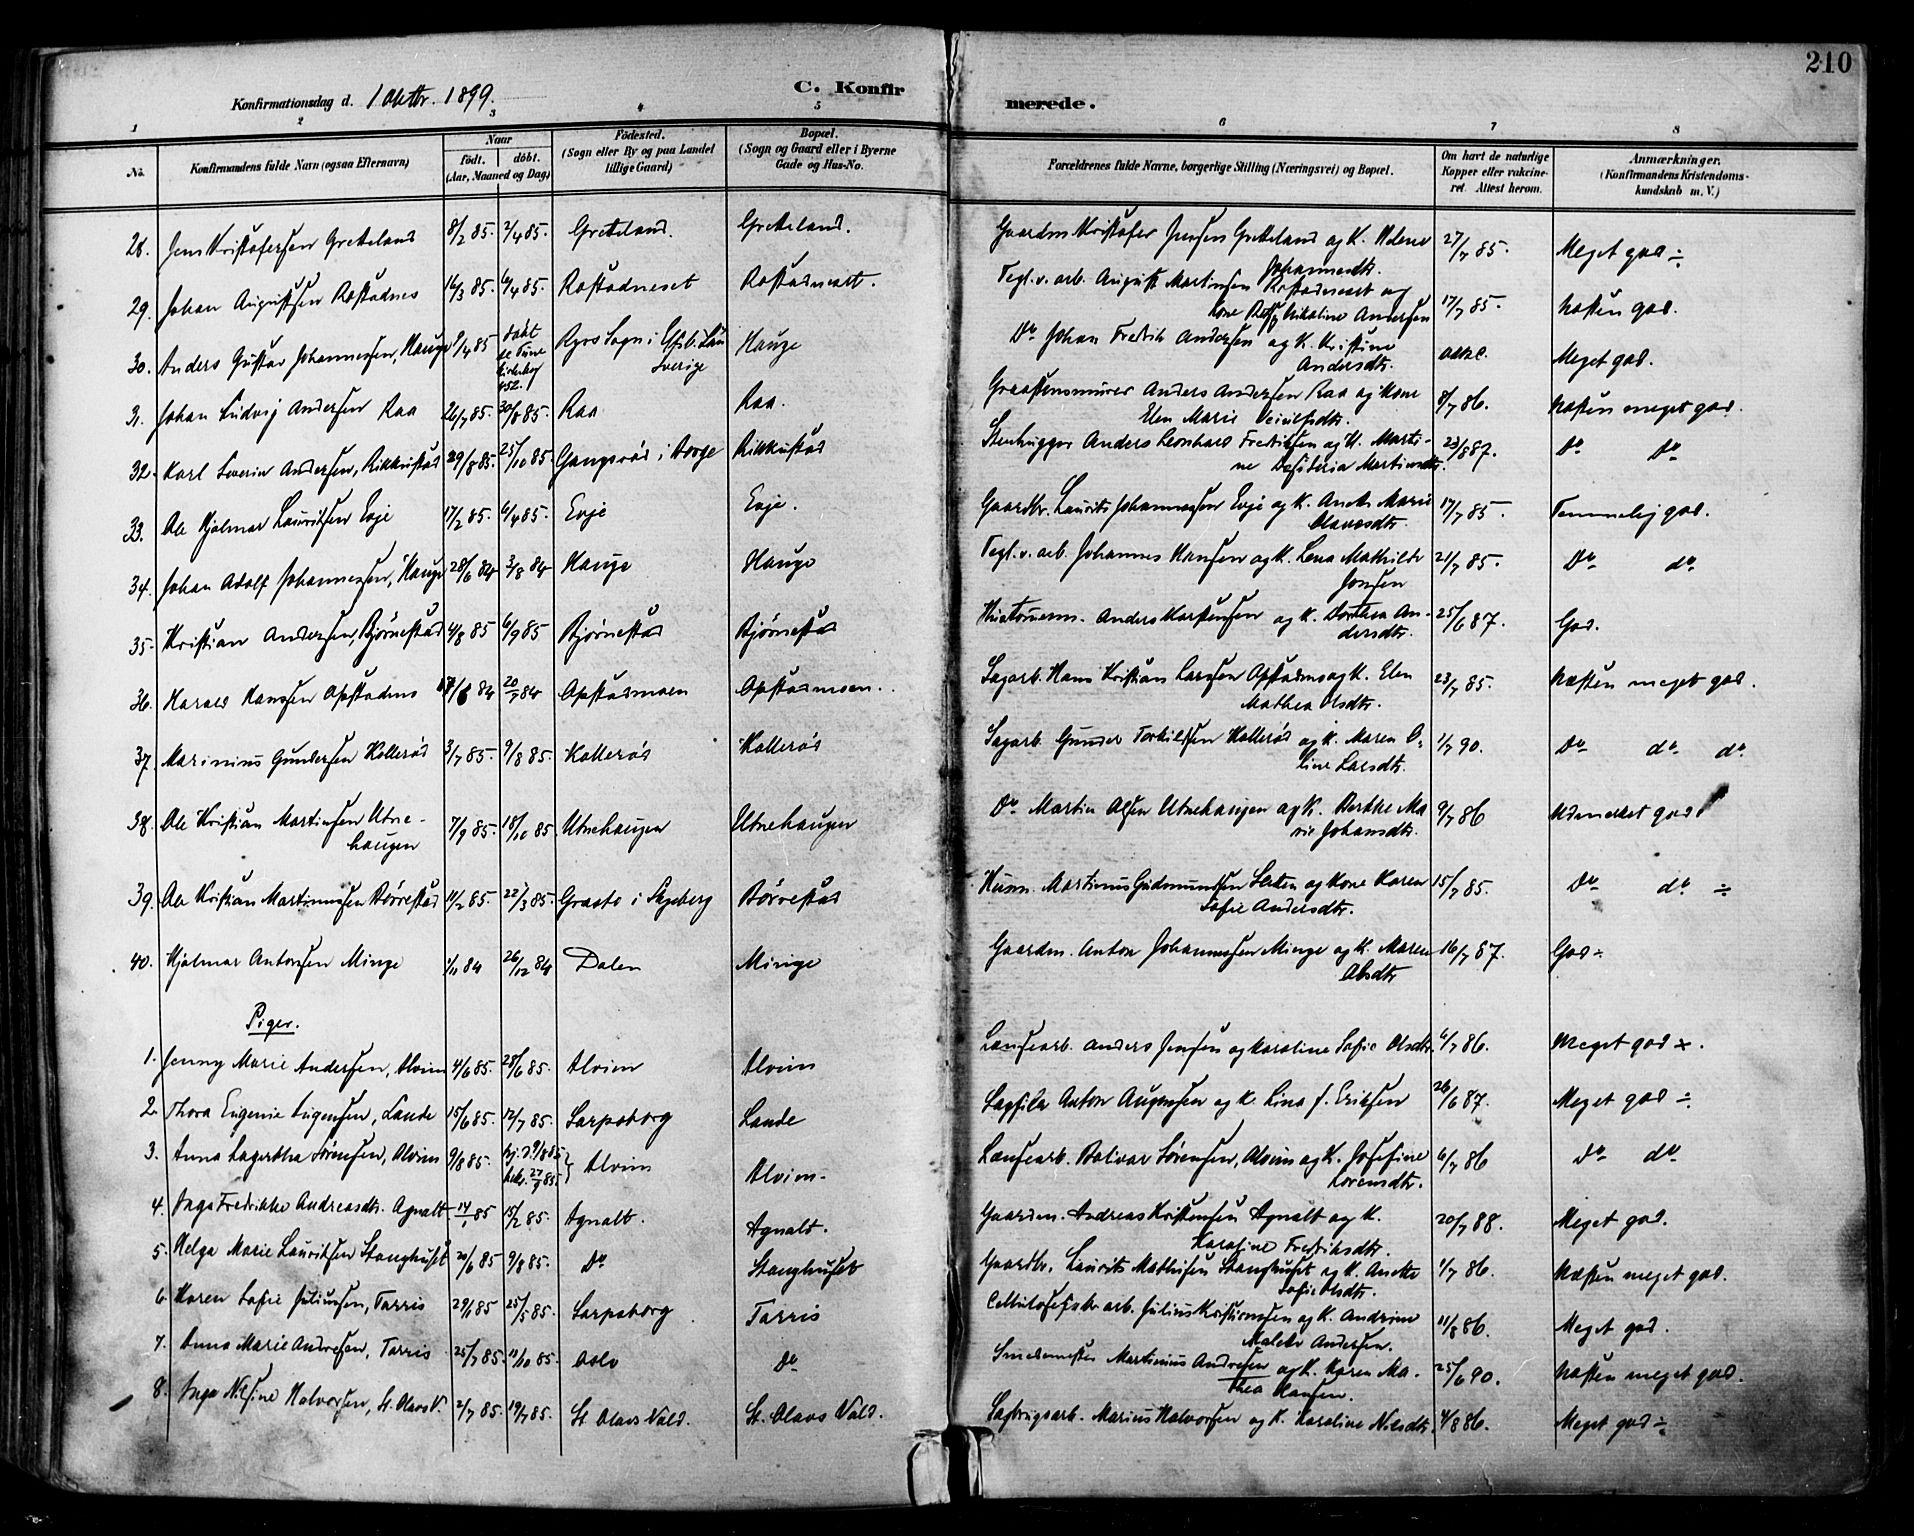 210
Konfirmationsdag d. 1 Oktbr. 1899.
C. Konfir
merede.
1 2 3 4 5 6 7 8
No.
Konfirmandens fulde Navn (ogsaa Efternavn)
Naar
födt. döbt.
(Aar, Maaned og Dag)
Födested.
(Sogn eller By og paa Landet
tillige Gaard)
Bopæl.
(Sogn og Gaard eller i Byerne
Gade og Hus-No.
Forældrenes fulde Navne, borgerlige Stilling (Næringsvei) og Bopæl.
Om havt de naturlige
Kopper eller vakcine-
ret. Attest herom.
Anmærkninger.
(Konfirmandens Kristendoms-
kundskab m. V.)
28. Jens Kristofersen Gretteland 8/2 85. 2/4 85. Gretteland. Gretteland. Gaardm Kristofer Jensen Gretteland og K. 27/7 85. Meget god ÷
Johannesdtr.
29. Johan Augustsen Rostadnes 16/3 85. 6/4 85. Rostadneset Rostadneset. Tegl.v. arb. August Martinsen Rostadneset og
Kone Nikoline Andersen 17/7 85. Næsten god.
30. Anders Gustav Johannessen, Hauge /4 85 döbt Sogn i Hauge Do Johan Fredrik Andersen og K. Kristine
Sverige Andersdtr. Meget god.
31. Johan Ludvig Andersen Raa 26/7 85. 30/8 85. Raa Raa. Graastensmurer Anders Andersen Raa og Kone 8/7 86. Næsten meget god.
Elen Marie
32. Karl Severin Andersen, Rikkustad 29/8 85. 25/10 85. Gangsrød i Borge Rikkustad Stenhugger Anders Leonhard Fredriksen og K. Marti- 23/8 87. Do Do
ne Desideria Martinsdtr.
33. Ole Hjalmar Lauritsen Evje 17/2 85. 6/4 85. Evje Evje. Gaardbr. Laurits Johannessen Evje og K. Anette Marie 17/7 85. Temmelig god.
Olavesdtr.
34. Johan Adolf Johannessen, Hauge 28/6 84 3/8 84 Hauge Hauge Tegl.v. arb. Johannes Hansen og K. Lena Mathilde 21/7 85. Do do
Jonsen
35. Kristian Andersen, Bjørnestad 4/8 85 6/9 85 Bjørnestad Bjørnestad Anders Karstensen og K. Dorthea An- 25/6 87. God.
dersdtr.
36. Harald Hansen Opstadmo /6 84 20/7 84 Opstadmoen Opstadmoen. Sagarb. Hans Kristian Larssen Opstadmo og K. Elen 23/7 85. Næsten meget god.
Mathea Olsdtr.
37. Marinius Gundersen Kollerød 3/7 85. 9/8 85. Kollerød Kollerød Sagarb. Gunder Torkilsen Kollerød og K. Maren O- 1/7 90. Do do do
line Larsdtr.
38. Ole Kristian Martinsen Utne- 7/9 85. 18/10 85. Utnehaugen Utnehaugen Do Martin Olsen Utnehaugen og K. Berthe Ma 9/7 86 Udmerket god
haugen rie Johansdtr.
39. Ole Kristian Martinussen Børrestad 11/2 85. 22/3 85. Graato i Skjeberg Børrestad Husm. Martinus Gudmundsen Sletten og Kone Karen 15/7 85. Do do ÷
Sofie Andersdtr.
40. Hjalmar Antonsen Minge 1/11 84 26/12 84 Dalen Minge Gaardm. Anton Johannessen Minge og K. Maren 16/7 87. God ÷
Olsdtr
Piger.
1. Jenny Marie Andersen, Alvim 4/6 85. 28/6 85. Alvim Alvim Lændsearb. Anders Jensen og Karoline Sofie Olsdtr. 6/7 86. Meget god ×.
2. Thora Eugenie Augensen, Lande 15/6 85. 12/7 85. Sarpsborg Lande Sagfiler Anton Augensen og K. Lina f. Eriksen 26/6 87. Meget god ÷
3. Anna Lagertha Sørensen, Alvim 9/8 85. hj.d. 9/8 85. 27/9 85. Alvim Alvim. Lændsearb. Bolivar Sørensen, Alvim og K. Josefine 6/7 86 Do do
Lorensdtr.
4. Inga Fredrikke Andreasdtr. Agnalt 14/1 85 15/2 85. Agnalt. Agnalt. Gaardm. Andreas Kristensen Agnalt og K. 20/7 88. Meget god.
Karoline Fredriksdtr.
5. Helga Marie Lauritsen Stanghuset 20/6 85 9/8 85. Do Stanghuset Gaardbr. Laurits Mathisen Stanghuset og K. Anette 1/7 86. Næsten meget god.
Sofie Olsdtr.
6. Karen Sofie Juliussen, Torris 29/1 85 25/5 85. Sarpsborg Torris Cellulosefabr arb. Julius Kristiansen og K. Andrine 11/8 86. Meget god.
Andersen.
7. Anna Marie Andresen, Torris 25/7 85. 11/10 85. Oslo Do Smedemester Martinius Andresen og K. Karen Ma- 25/6 90. Næsten meget god.
thea Hansen.
8. Inga Nilsine Halvorsen, St. Olavs V. 2/7 85. 19/7 85. St. Olavs Vold. St. Olavs Vold. Sagbrugsarb. Marius Halvorsen og K. Karoline Nilsdtr. 4/8 86. Meget god ÷